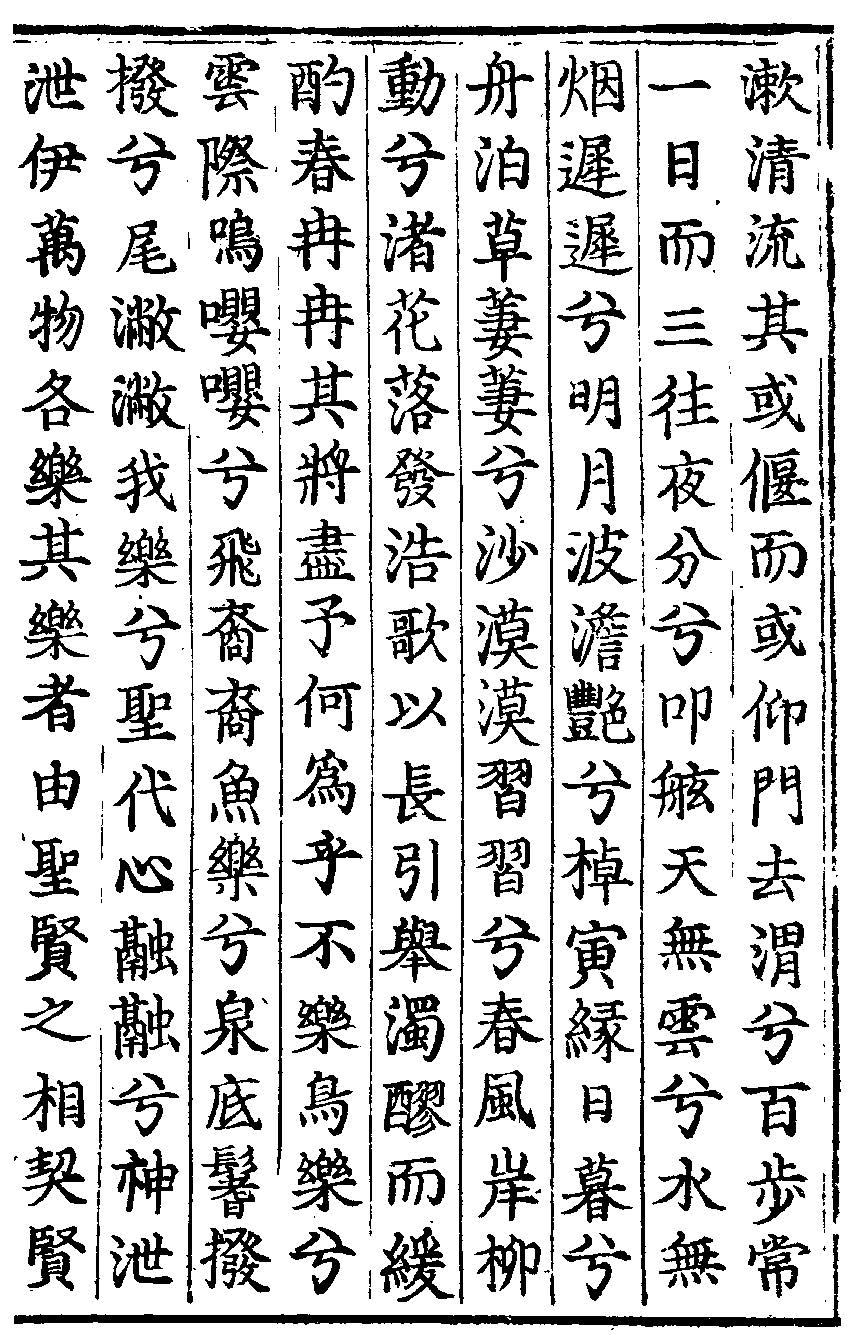 漱清流其或偃而或仰門去渭兮百步常
一日而三往夜分兮叩舷天無雲兮水無
烟遲遲兮明月波澹豔兮棹寅縁日暮兮
舟泊草萋萋兮沙漠漠習習兮春風岸柳
動兮渚花落發浩歌以長引舉濁醪而緩
酌春冉冉其將盡予何爲乎不樂鳥樂兮
雲際鳴嚶嚶兮飛裔裔魚樂兮泉底鬐撥
撥兮尾潎潎我樂兮聖代心融融兮神泄
泄伊萬物各樂其樂者由聖賢之相契賢